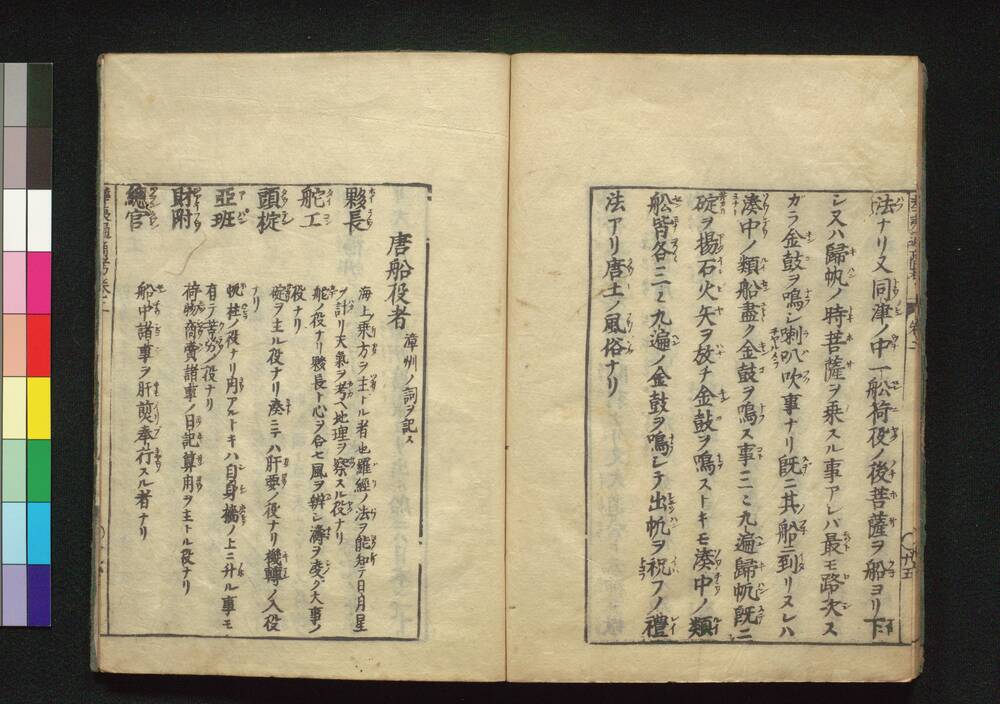 法ナリ又同津ノ中一舩荷役ノ後菩薩ヲ船ヨリ下
シ又ハ歸帆ノ時菩薩ヲ乗スル事アレバ最モ路次ス
ガラ金鼓ヲ鳴シ喇叭吹事ナリ既ニ其船ニ到リヌレハ
湊中ノ類船盡ク金鼓ヲ鳴ス事三々九遍歸帆既ニ
碇ヲ揚石火矢ヲ放チ金鼓ヲ鳴ストキモ湊中ノ類
舩皆各三々九遍ノ金鼓ヲ鳴シテ出帆ヲ祝フノ禮
法アリ唐土ノ風俗ナリ
唐船役者 漳州ノ詞ヲ記ス
夥長 海上乗方ヲ主トル者也羅經ノ法ヲ能知テ日月星
ヲ計リ天氣ヲ考ヘ地理ヲ察スル役ナリ
舵工 舵ノ役ナリ夥長ト心ヲ合セ風ヲ辨シ濤ヲ凌ク大事ノ
役ナリ
頭椗 碇ヲ主ル役ナリ湊ニテハ肝要ノ役ナリ機轉ノ入役
ナリ
亞班 帆柱ノ役ナリ用アルトキハ自身檣ノ上ニ升ル事モ
有テ苦労ノ役ナリ
財附 荷物商賣諸事ノ日記算用ヲ主トル役ナリ
總官 船中諸事ヲ肝煎奉行スル者ナリ